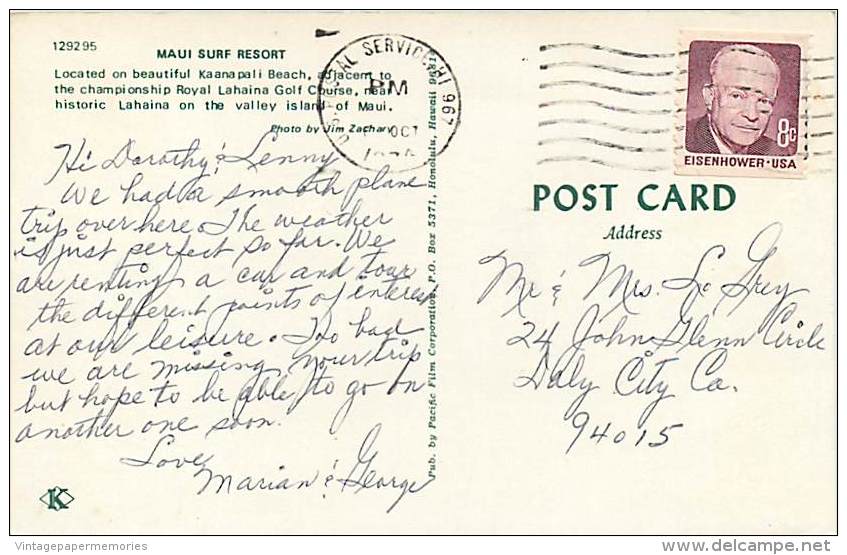 129295
MAUI SURF RESORT
Located on beautiful Kaanapali Beach, adjacent to
the championship Royal Lahaina Golf Course, near
historic Lahaina on the valley island of Maui.
Photo by Jim Zachary
Hi Dorothy & Lenny
We had a smooth plane
trip over here. The weather
is just perfect so far. We
are renting a car and tour
the different points of interest
at our leisure. Too bad
we are missing your trip
but hope to be able to go on
another one soon.
Love,
Marian & George
K
Pub. by Pacific Film Corporation, P.O. Box 5371, Honolulu, Hawaii
POSTAL SERVICE HI 967
PM
OCT
8c
EISENHOWER · USA
POST CARD
Address
Mr & Mrs. L. Grey
24 John Glenn Circle
Daly City Ca.
94015
Vintagepapermemories
delcampe.net